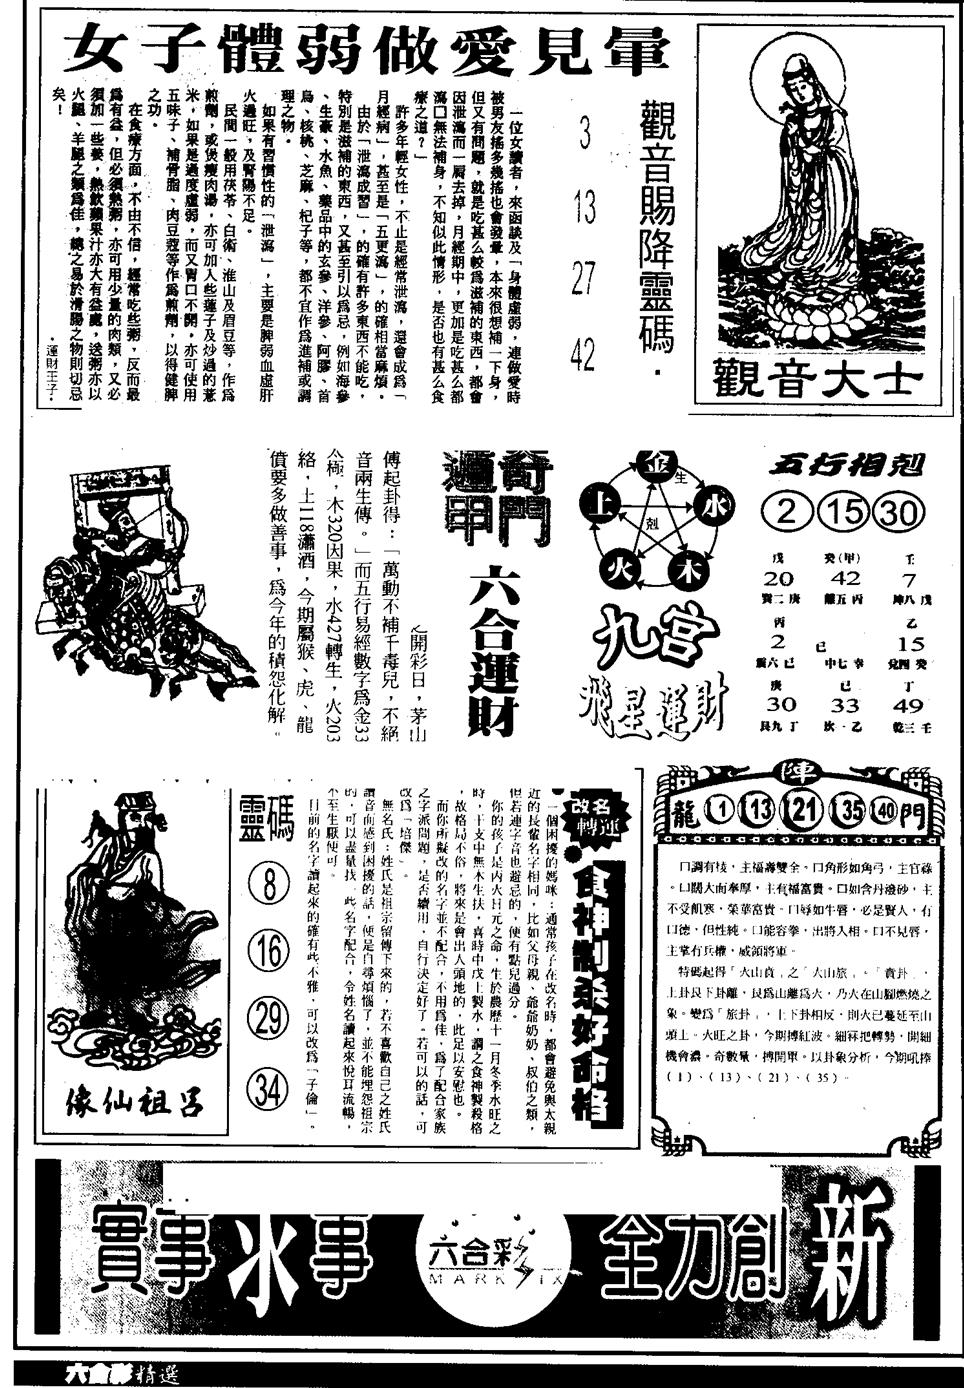 女子體弱做愛見暈
一位女讀者，來函談及「身體虛弱，連做愛時
被男友搖多幾搖也會發暈，本來很想補一下身，
但又有問題，就是吃甚么較為滋補的東西，都會
因泄瀉而一屙去掉，月經期中，更加是吃甚么都
瀉口無法補身，不知似此情形，是否也有甚么食
療之道？」
許多年輕女性，不止是經常泄瀉，還會成為「
月經病」，甚至是「五更瀉」，的確相當麻煩。
由於「泄瀉成習」，的確有許多東西不能吃，
特別是滋補的東西，又甚至引以為忌，例如海參
、生蠔、水魚、藥品中的玄參、洋參、阿膠、首
烏、核桃、芝麻、杞子等，都不宜作為進補或調
理之物。
如果有習慣性的「泄瀉」，主要是脾弱血虛肝
火過旺，及腎陽不足。
民間一般用茯苓、白術、淮山及眉豆等，作為
煎劑，或煲瘦肉湯，亦可加入些蓮子及炒過的薏
米，如果是過度虛弱，而又胃口不開，亦可使用
五味子、補骨脂、肉豆蔻等作為煎劑，以得健脾
之功。
在食療方面，不由不信，經常吃些粥，反而最
為有益，但必須熱粥，亦可用少量的肉類，又必
須加一些薑，熱飲蘋果汁亦大有益處，送粥亦以
火腿、羊腿之類為佳，總之易於滑陽之物則切忌
矣！
·運財王子·
觀音賜降靈碼·
3
13
27
42
觀音大士
奇門
遁甲
六合運財
開彩日，茅山
傅起卦得：「萬動不補千毒兒，不絕
音兩生傳。」而五行易經數字為金33
極，木320因果，水427轉生，火203
絡，土118瀟洒，今期屬猴、虎、龍
債要多做善事，為今年的積怨化解。
金
生
水
木
火
土
剋
九宮
飛星運財
五行相剋
2 15 30
戊 癸(甲) 壬
20 42 7
巽二庚 離五丙 坤八戊
丙 乙
2 己 15
震六巳 中七辛 兌四癸
庚 己 丁
30 33 49
艮九丁 坎一乙 乾三壬
呂祖仙像
靈碼
8
16
29
34
改名
轉運
食神制杀好命格
一個困擾的媽咪：通常孩子在改名時，都會避免與太親
近的長輩名字相同，比如父母親、爺爺奶奶、叔伯之類，
但若連字音也避忌的，便有點兒過分。
你的孩子是丙火日元之命，生於農歷十一月冬季水旺之
時，干支中無木生扶，喜時中戊土製水，謂之食神製殺格
，故格局不俗，將來是會出人頭地的，此足以安慰也。
而你所擬改的名字並不配合，不用為佳，為了配合家族
之字派問題，是否續用，自行決定好了。若可以的話，可
改為「培傑」。
無名氏：姓氏是祖宗留傳下來的，若不喜歡自己之姓氏
讀音而感到困擾的話，便是自尋煩惱了，並不能埋怨祖宗
的，可以盡量找一些名字配合，令姓名讀起來悅耳流暢，
不至生厭便可。
目前的名字讀起來的確有些不雅，可以改為「子倫」。
陣
龍 1 13 21 35 40 門
口調有枝，主福壽雙全。口角形如角弓，主官祿
。口闊大而奉厚，主有福富貴。口如含丹潑砂，主
不受飢寒，榮華富貴。口唇如牛唇，必是賢人，有
口德，但性純。口能容拳，出將入相。口不見唇，
主掌有兵權，威領將軍。
特碼起得「火山賁」之「火山旅」。「賁卦」，
上卦艮下卦離，艮為山離為火，乃火在山腳燃燒之
象。變為「旅卦」，上下卦相反，則火已蔓延至山
頭上。火旺之卦，今期搏紅波。細冧把轉勢，開細
機會濃。奇數量，搏開單。以卦象分析，今期吼捧
（1）、（13）、（21）、（35）。
實事求事
六合彩
MARK SIX
全力創新
六合彩精選